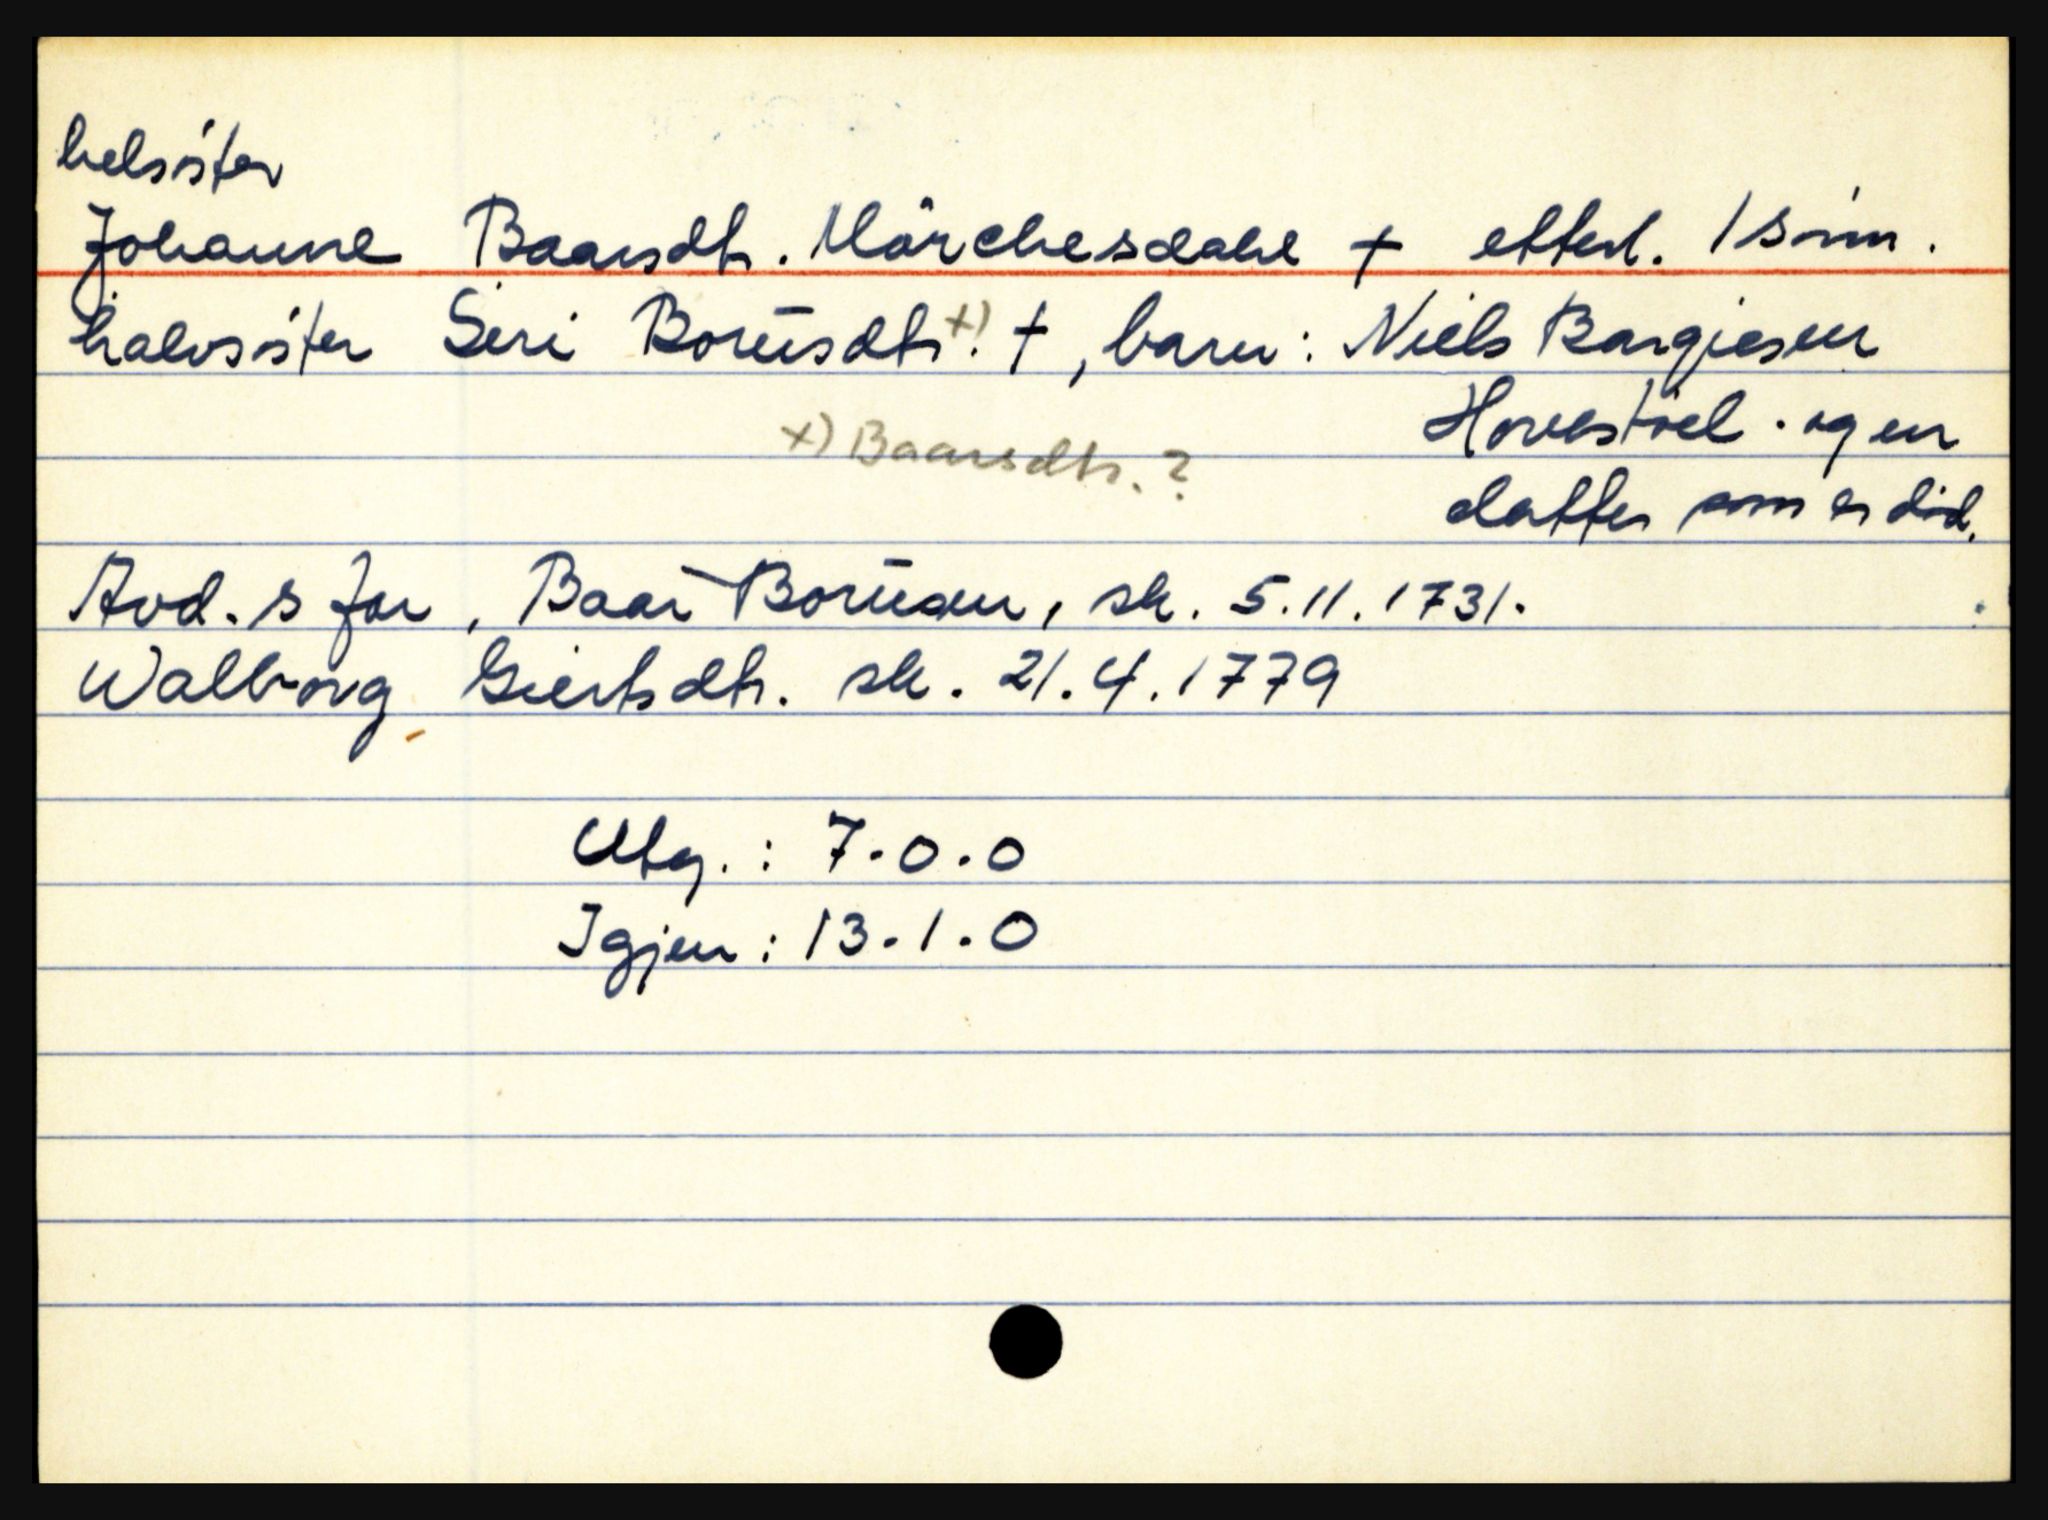 helsöster
Johanne Baarsdtr. Mörchesdahl + etterl. 1 sönn.
halvsöster Seri Borüsdtr. x) †, barn: Niels Bargiesen
Hovestöel. og en
x) Baarsdtr. ?
datter som er död.
Avd. s far, Baar Borüsen, sk. 5.11.1731.
Walborg Giertsdtr. sk. 21.4.1779
Utg. : 7.0.0
Igjen : 13.1.0